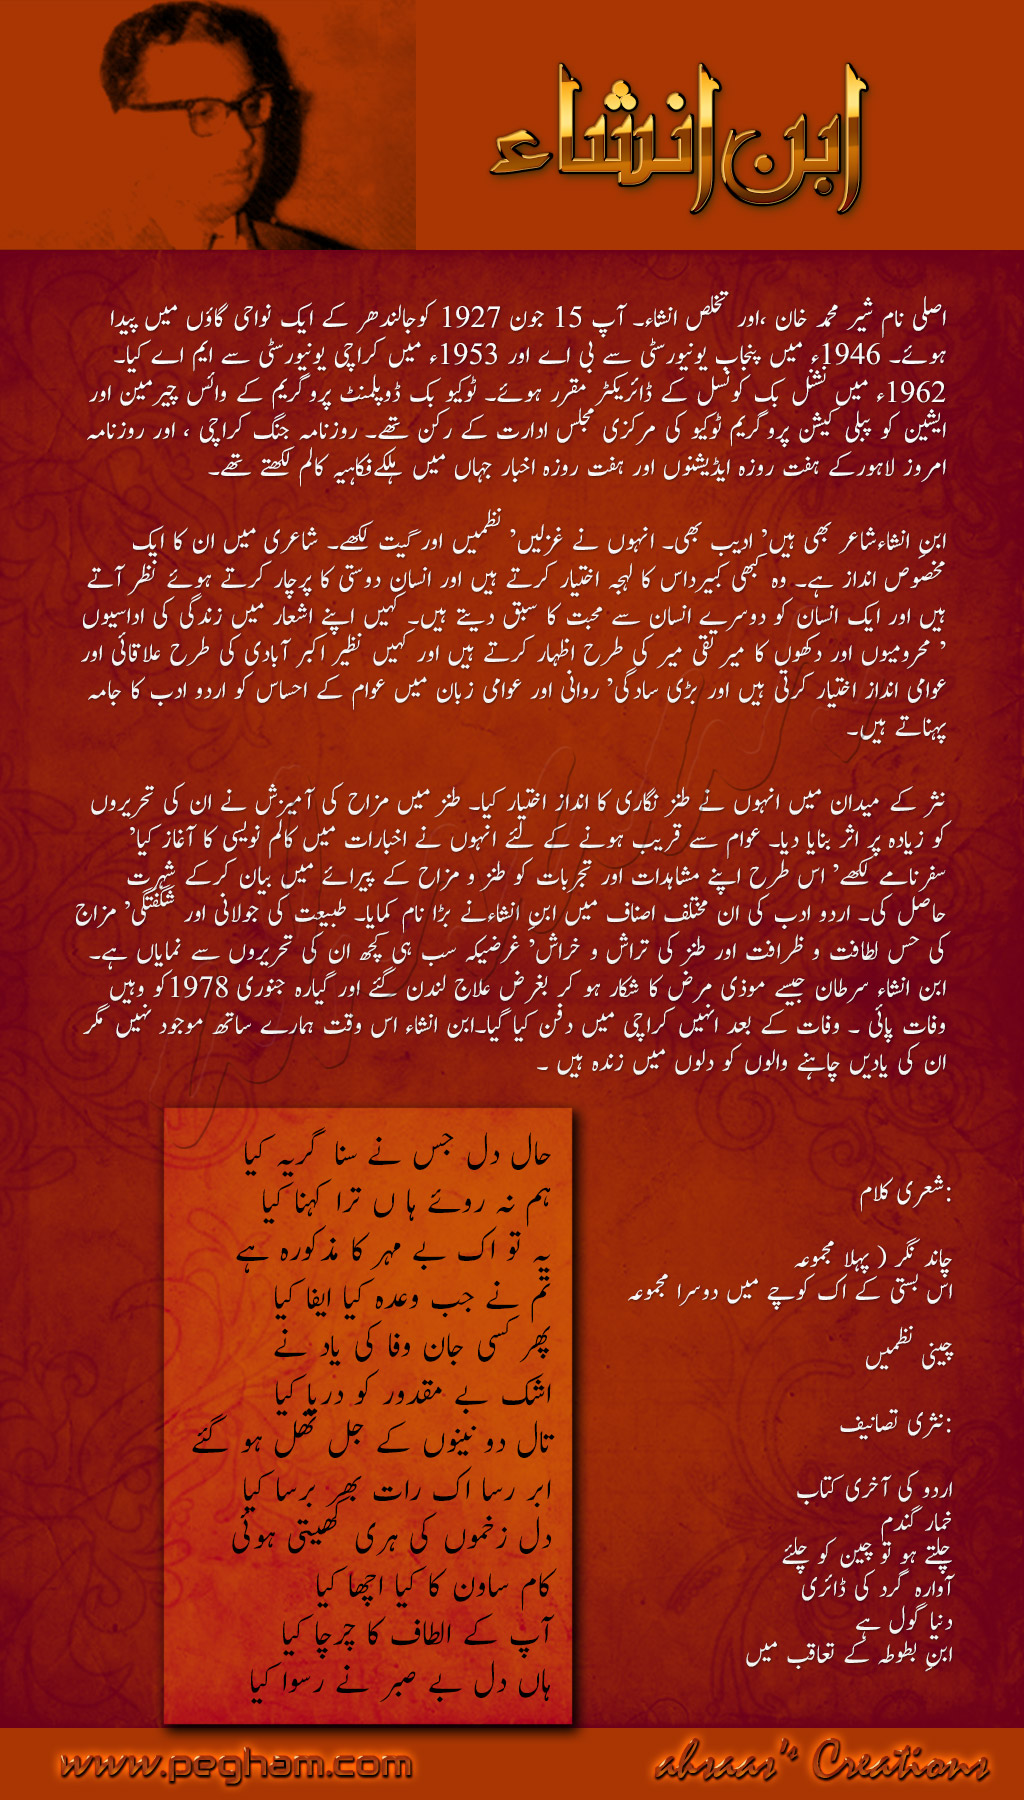 ابن انشاء
اصلی نام شیر محمد خان ،اور تخلص انشاء۔ آپ 15 جون 1927 کوجالندھر کے ایک نواحی گاؤں میں پیدا
ہوئے۔ 1946ء میں پنجاب یونیورسٹی سے بی اے اور 1953ء میں کراچی یونیورسٹی سے ایم اے کیا۔
1962ء میں نشنل بک کونسل کے ڈائریکٹر مقرر ہوئے۔ ٹوکیو بک ڈوپلمنٹ پروگریم کے وائس چیرمین اور
ایشین کو پبلی کیشن پروگریم ٹوکیو کی مرکزی مجلس ادارت کے رکن تھے۔ روزنامہ جنگ کراچی ، اور روزنامہ
امروز لاہورکے ہفت روزہ ایڈیشنوں اور ہفت روزہ اخبار جہاں میں ہلکےفکاہیہ کالم لکھتے تھے۔
ابنِ انشاءشاعر بھی ہیں’ ادیب بھی۔ انہوں نے غزلیں’ نظمیں اور گیت لکھے۔ شاعری میں ان کا ایک
مخصوص انداز ہے۔ وہ کبھی کبیرداس کا لہجہ اختیار کرتے ہیں اور انسان دوستی کا پرچار کرتے ہوئے نظر آتے
ہیں اور ایک انسان کو دوسرے انسان سے محبت کا سبق دیتے ہیں۔ کہیں اپنے اشعار میں زندگی کی اداسیوں
’ محرومیوں اور دکھوں کا میر تقی میر کی طرح اظہار کرتے ہیں اور کہیں نظیر اکبر آبادی کی طرح علاقائی اور
عوامی انداز اختیار کرتی ہیں اور بڑی سادگی’ روانی اور عوامی زبان میں عوام کے احساس کو اردو ادب کا جامہ
پہناتے ہیں۔
نثر کے میدان میں انہوں نے طنز نگاری کا انداز اختیار کیا۔ طنز میں مزاح کی آمیزش نے ان کی تحریروں
کو زیادہ پر اثر بنایا دیا۔ عوام سے قریب ہونے کے لئے انہوں نے اخبارات میں کالم نویسی کا آغاز کیا’
سفرنامے لکھے’ اس طرح اپنے مشاہدات اور تجربات کو طنز و مزاح کے پیرائے میں بیان کرکے شہرت
حاصل کی۔ اردو ادب کی ان مختلف اصناف میں ابنِ انشاءنے بڑا نام کمایا۔ طبیعت کی جولانی اور شگفتگی’ مزاج
کی حس لطافت و ظرافت اور طنز کی تراش و خراش’ غرضیکہ سب ہی کچھ ان کی تحریروں سے نمایاں ہے۔
ابن انشاء سرطان جیسے موذی مرض کا شکار ہو کر بغرض علاج لندن گئے اور گیارہ جنوری 1978کو وہیں
وفات پائی ۔ وفات کے بعد انہیں کراچی میں دفن کیا گیا۔ابن انشاء اس وقت ہمارے ساتھ موجود نہیں مگر
ان کی یادیں چاہنے والوں کو دلوں میں زندہ ہیں ۔
شعری کلام:
چاند نگر ( پہلا مجموعہ
اس بستی کے اک کوچے میں دوسرا مجموعہ
چینی نظمیں
نثری تصانیف:
اردو کی آخری کتاب
خمار گندم
چلتے ہو تو چین کو چلئے
آوارہ گرد کی ڈائری
دنیا گول ہے
ابنِ بطوطہ کے تعاقب میں
حال دل جس نے سنا گریہ کیا
ہم نہ روئے ہا ں ترا کہنا کیا
یہ تو اک بے مہر کا مذکورہ ہے
تم نے جب وعدہ کیا ایفا کیا
پھر کسی جان وفا کی یاد نے
اشک بے مقدور کو دریا کیا
تال دو نینوں کے جل تھل ہو گئے
ابر رسا اک رات بھر برسا کیا
دل زخموں کی ہری کھیتی ہوئی
کام ساون کا کیا اچھا کیا
آپ کے الطاف کا چرچا کیا
ہاں دل بے صبر نے رسوا کیا
www.pegham.com
ahsaas's Creations